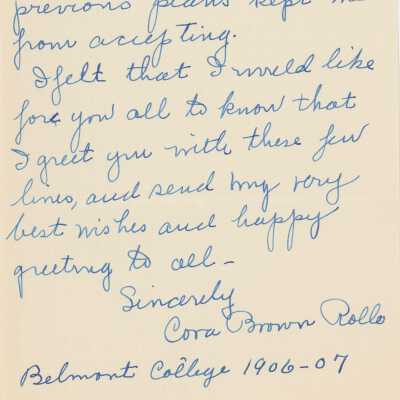 previous plans kept me
from accepting.
I felt that I would like
for you all to know that
I greet you with these few
lines, and send my very
best wishes and happy
greeting to all –
Sincerely
Cora Brown Rollo
Belmont College 1906-07